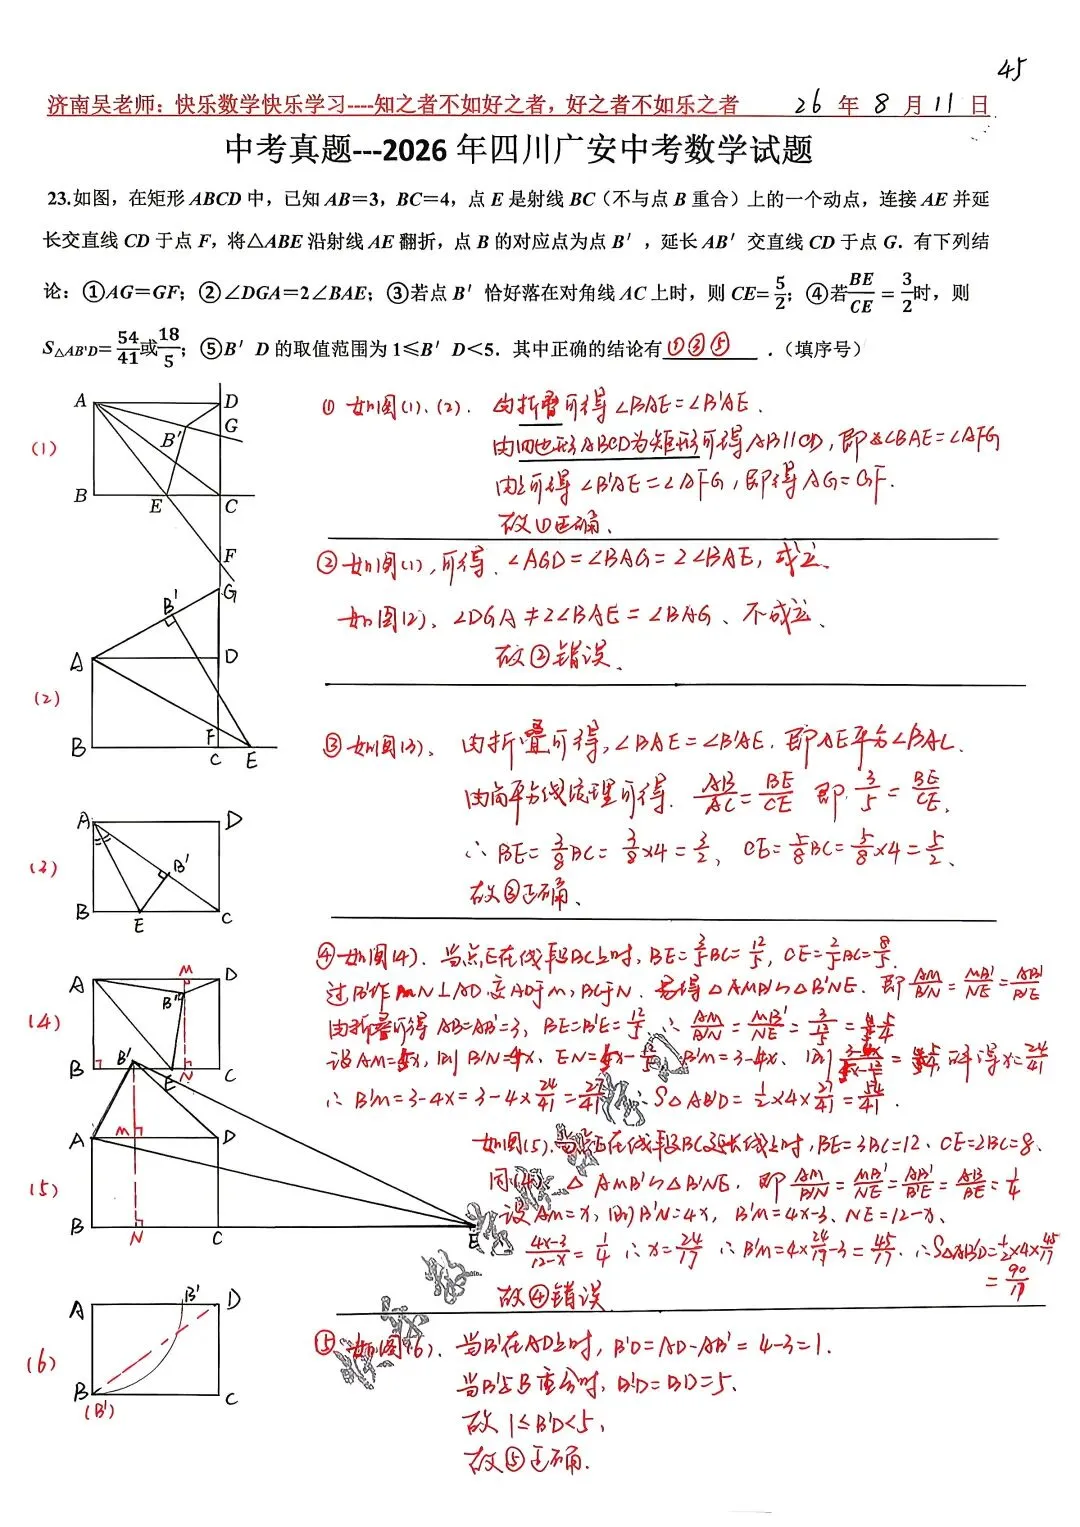 45
济南吴老师：快乐数学快乐学习----知之者不如好之者，好之者不如乐之者 26 年 8 月 11 日
中考真题---2026 年四川广安中考数学试题
23.如图，在矩形 ABCD 中，已知 AB＝3，BC＝4，点 E 是射线 BC（不与点 B 重合）上的一个动点，连接 AE 并延
长交直线 CD 于点 F，将△ABE 沿射线 AE 翻折，点 B 的对应点为点 B′，延长 AB′ 交直线 CD 于点 G．有下列结
论：①AG＝GF；②∠DGA＝2∠BAE；③若点 B′ 恰好落在对角线 AC 上时，则 CE= 5/2；④若BE/CE = 3/2时，则
S△AB'D= 54/41或18/5；⑤B′ D 的取值范围为 1≤B′ D＜5．其中正确的结论有 ①③⑤ ．（填序号）
(1)
A D G B′ B E C F
① 如图(1)、(2)． 由折叠可得∠BAE=∠B'AE．
由四边形ABCD为矩形可得AB∥CD，即∠BAE=∠AFG
由上可得∠B'AE=∠AFG，即得AG=GF．
故①正确．
② 如图(1)，可得．∠AGD=∠BAG=2∠BAE，成立．
如图(2)、∠DGA≠2∠BAE=∠BAG、不成立、
故②错误．
(2)
G B' A D F B C E
③ 如图(3)、 由折叠可得，∠BAE=∠B'AE．即AE平分∠BAC．
由角平分线定理可得．AB/AC=BE/CE 即．3/5=BE/CE．
∴BE=3/8BC=3/8×4=3/2，CE=5/8BC=5/8×4=5/2、
故③正确、
(3)
A D B' B E C
④如图(4)．当点E在线段BC上时，BE=3/5BC=12/5，CE=2/5BC=8/5．
过B'作MN⊥AD交AD于M，BC于N．易得△AMB'∽△B'NE．即AM/B'N=MB'/NE=AB'/B'E
由折叠可得AB=AB'=3，BE=B'E=12/5．∴AM/B'N=MB'/NE=3/(12/5)=5/4
设AM=5x，则B'N=4x、EN=5x-12/5 B'M=3-4x、则 =5/4，解得x=24/41
∴B'M=3-4x=3-4×24/41=27/41 ∴S△AB'D=1/2×4×27/41=54/41．
(4)
A M D B' B E N C
如图(5)、当点E在线段BC延长线上时，BE=3BC=12、CE=2BC=8．
同(4)、△AMB'∽△B'NE．即AM/B'N=MB'/NE=AB'/B'E=AB/BE=1/4
设AM=x，则B'N=4x，B'M=4x-3、NE=12-x、
(4x-3)/(12-x)=1/4 ∴x=24/17 ∴B'M=4×24/17-3=45/17．∴S△AB'D=1/2×4×45/17
=90/17
故④错误
(5)
B' A M D B N C E
⑤ 如图(6)． 当B'在AD上时，B'D=AD-AB'=4-3=1．
当B'与B重合时，B'D=BD=5、
故1≤B'D<5、
故⑤正确．
(6)
A B' D B (B') C